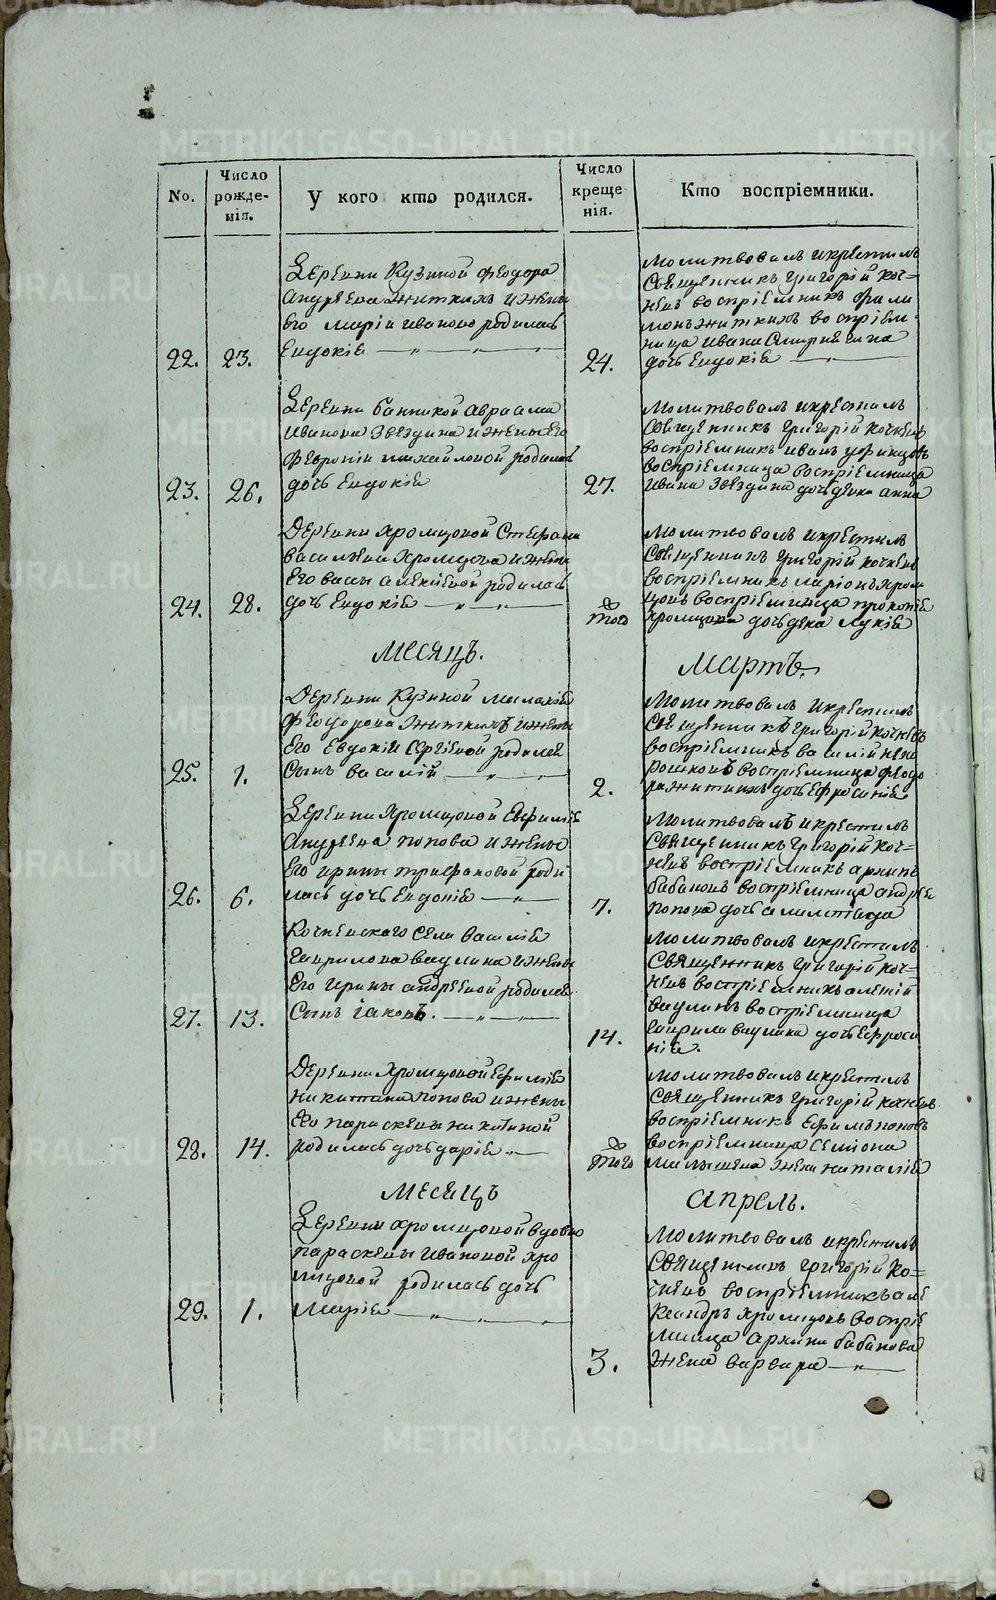 METRIKI.GASO-URAL.RU
No.
Число рожде-нія.
У кого кто родился.
Число креще-нія.
Кто воспріемники.
22.
23.
Деревни Кузиной Феодора
Андреева Житкихъ и жены
его Маріи Ивановой родилась
Евдокія
24.
Молитвовалъ и крестилъ
Священникъ Григорій Коч=
невъ воспріемникъ Фили
монъ Житкихъ воспріем
ница Ивана
дочь Евдокія
23.
26.
Деревни Банниковой Авраама
Иванова Звездина и жены его
Февроніи Михайловой родилась
дочь Евдокія
27.
Молитвовалъ и крестилъ
Священникъ Григорій Кочневъ
воспріемникъ Иванъ Уфинцовъ
воспріемница воспріемница
Ивана Звездина дочь девка Анна
24.
28.
Деревни Хромцовой Стефана
Васильева Хромцова и жены
его Вассы Алексеевой родилась
дочь Евдокія
того
Молитвовалъ и крестилъ
Священникъ Григорій Кочневъ
воспріемникъ Ларіонъ Хром
цовъ воспріемница Прокопія
Хромцова дочь девка Лукія
Месяцъ.
Мартъ.
25.
1.
Деревни Кузиной Малахія
Феодорова Житкихъ и жены
его Евдокіи Сергеевой родился
сынъ Василій
2.
Молитвовалъ и крестилъ
Священникъ Григорій Кочневъ
воспріемникъ Василій
воспріемница Феодо
ра Житкихъ дочь Ефросинія
26.
6.
Деревни Хромцовой Евфимія
Андреева Попова и жены
его Ирины Трифановой роди
лась дочь Евдокія
7.
Молитвовалъ и крестилъ
Священникъ Григорій Коч=
невъ воспріемникъ Архипъ
Бабановъ воспріемница Андрея
Попова дочь
27.
13.
Кочневского села Василія
Гаврилова Ваулина и жены
его Ирины Андреевой родился
сынъ Іаковъ.
14.
Молитвовалъ и крестилъ
Священникъ Григорій Коч=
невъ воспріемникъ Алексій
Ваулинъ воспріемница
Гаврила Ваулина дочь Ефроси
нія.
28.
14.
Деревни Хромцовой Ефимія
Никитина Попова и жены
его Параскевы Никитиной
родилась дочь Дарія
того
Молитвовалъ и крестилъ
Священникъ Григорій Кочневъ
воспріемникъ Ефимъ Поповъ
воспріемница Семіона
Малышева жена Наталія
Месяцъ
Апрель.
29.
1.
Деревни Хромцовой вдовы
Параскевы Ивановой Хро
мцовой родилась дочь
Марія
3.
Молитвовалъ и крестилъ
Священникъ Григорій Ко=
чневъ воспріемникъ Але
ксандръ Хромцовъ воспріе
мница Архипа Бабанова
жена Варвара